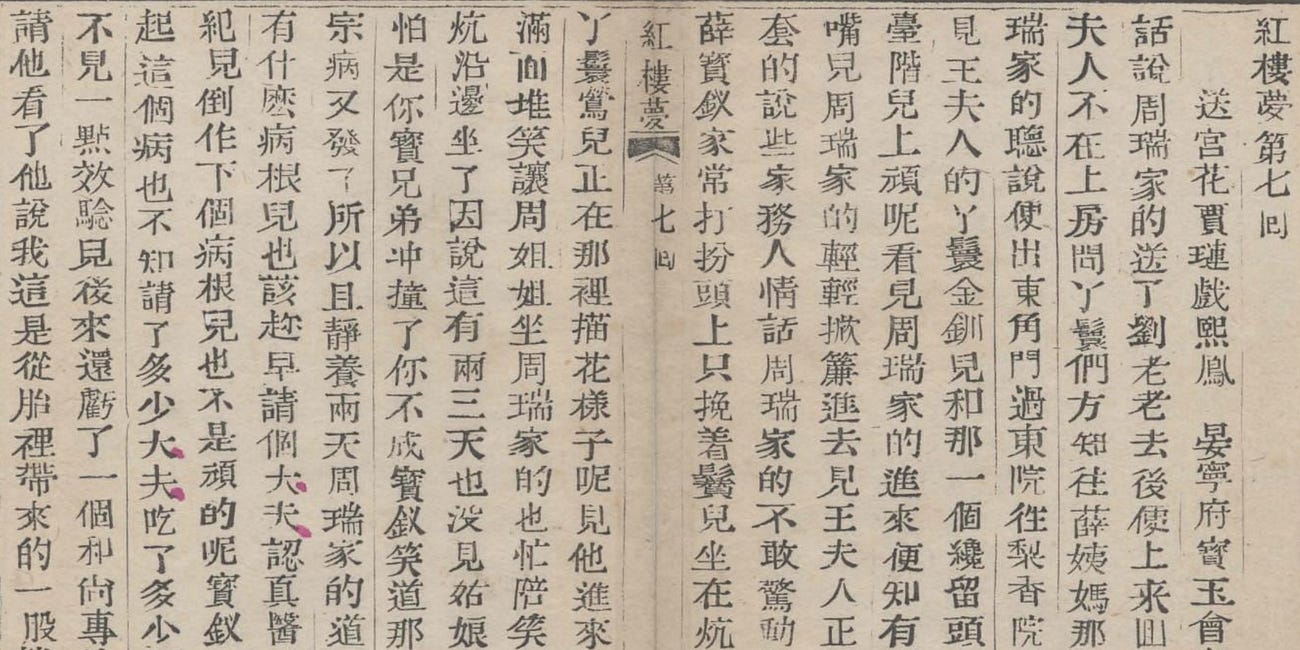 紅樓夢第七囘
送宮花賈璉戲熙鳳　晏寧府寳玉會
話說周瑞家的送了劉老老去後便上來囬
夫人不在上房問丫鬟們方知徃薛姨媽那
瑞家的聽說便出東角門過東院徃梨香院
見王夫人的丫鬟金釧兒和那一個纔留頭
臺階兒上頑呢看見周瑞家的進來便知有
嘴兒周瑞家的輕輕掀簾進去見王夫人正
套的說些家務人情話周瑞家的不敢驚動
薛寳釵家常打扮頭上只挽着鬢兒坐在炕
紅樓夢　第七囘
丫鬟鶯兒正在那裡描花樣子呢見他進來
滿面堆笑讓周姐姐坐周瑞家的也忙陪笑
炕沿邊坐了因說這有兩三天也没見姑娘
怕是你寳兄弟冲撞了你不成寳釵笑道那
宗病又發了所以且靜養兩天周瑞家的道
有什麽病根兒也該趂早請個大夫認真醫
紀兒倒作下個病根兒也不是頑的呢寳釵
起這個病也不知請了多少大夫吃了多少
不見一點效驗兒後來還虧了一個和尚專
請他看了他說我這是從胎裡帶來的一股